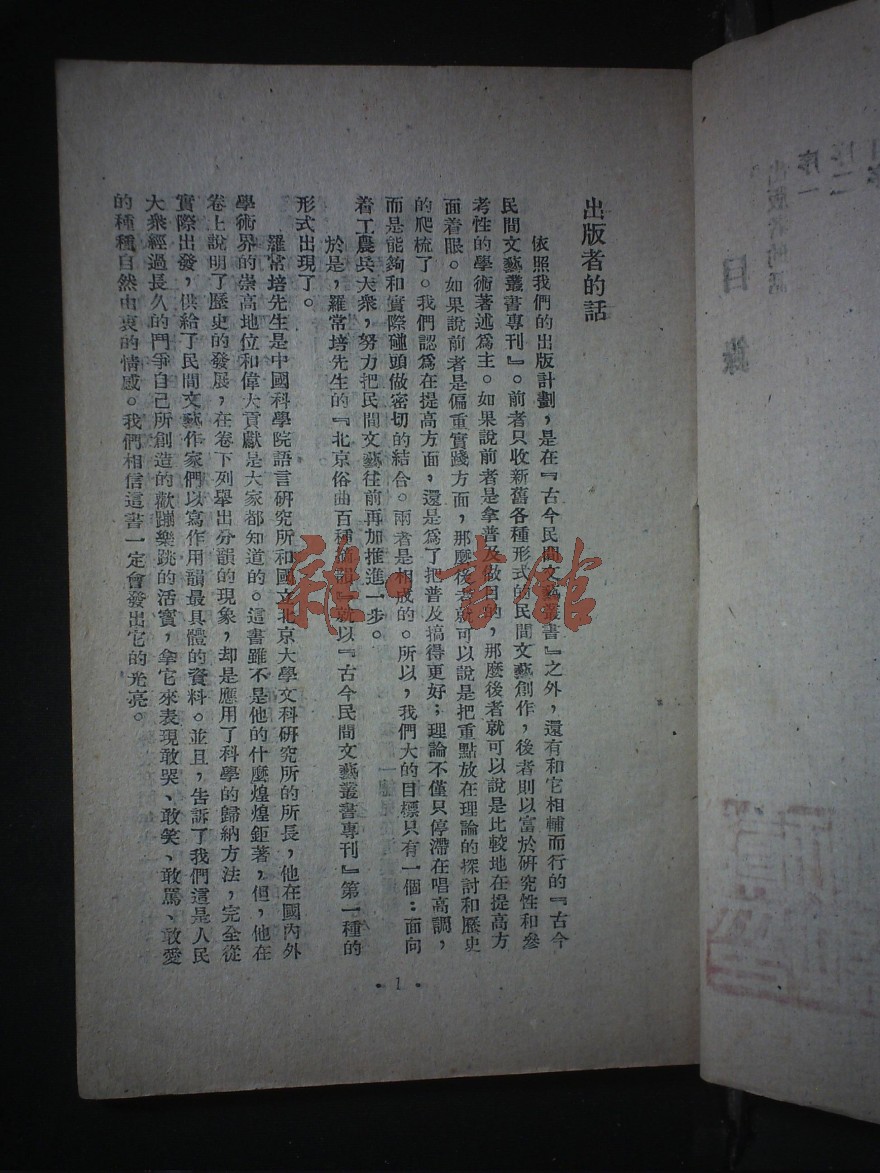 出版者的話
依照我們的出版計劃，是在『古今民間文藝叢書』之外，還有和它相輔而行的『古今
民間文藝叢書專刊』。前者只收新舊各種形式的民間文藝創作，後者則以富於研究性和參
考性的學術著述爲主。如果說前者是拿普及做目的，那麼後者就可以說是比較地在提高方
面着眼。如果說前者是偏重實踐方面，那麼後者就可以說是把重點放在理論的探討和歷史
的爬梳了。我們認爲在提高方面，還是爲了把普及搞得更好；理論不僅只停滯在唱高調，
而是能夠和實際碰頭做密切的結合。兩者是相成的。所以，我們大的目標只有一個：面向
着工農兵大衆，努力把民間文藝往前再加推進一步。
於是，羅常培先生的『北京俗曲百種摘韻』就以『古今民間文藝叢書專刊』第一種的
形式出現了。
羅常培先生是中國科學院語言研究所和國立北京大學文科研究所的所長，他在國內外
學術界的崇高地位和偉大貢獻是大家都知道的。這書雖不是他的什麼煌煌鉅著，但，他在
卷上說明了歷史的發展，在卷下列舉出分韻的現象，却是應用了科學的歸納方法，完全從
實際出發，供給了民間文藝作家們以寫作用韻最具體的資料。並且，告訴了我們這是人民
大衆經過長久的鬥爭自己所創造的歡蹦樂跳的活寶，拿它來表現敢哭、敢笑、敢罵、敢愛
的種種自然由衷的情感。我們相信這書一定會發出它的光亮。
• 1 •
雜書館
目錄
出版者的話
序一
序二